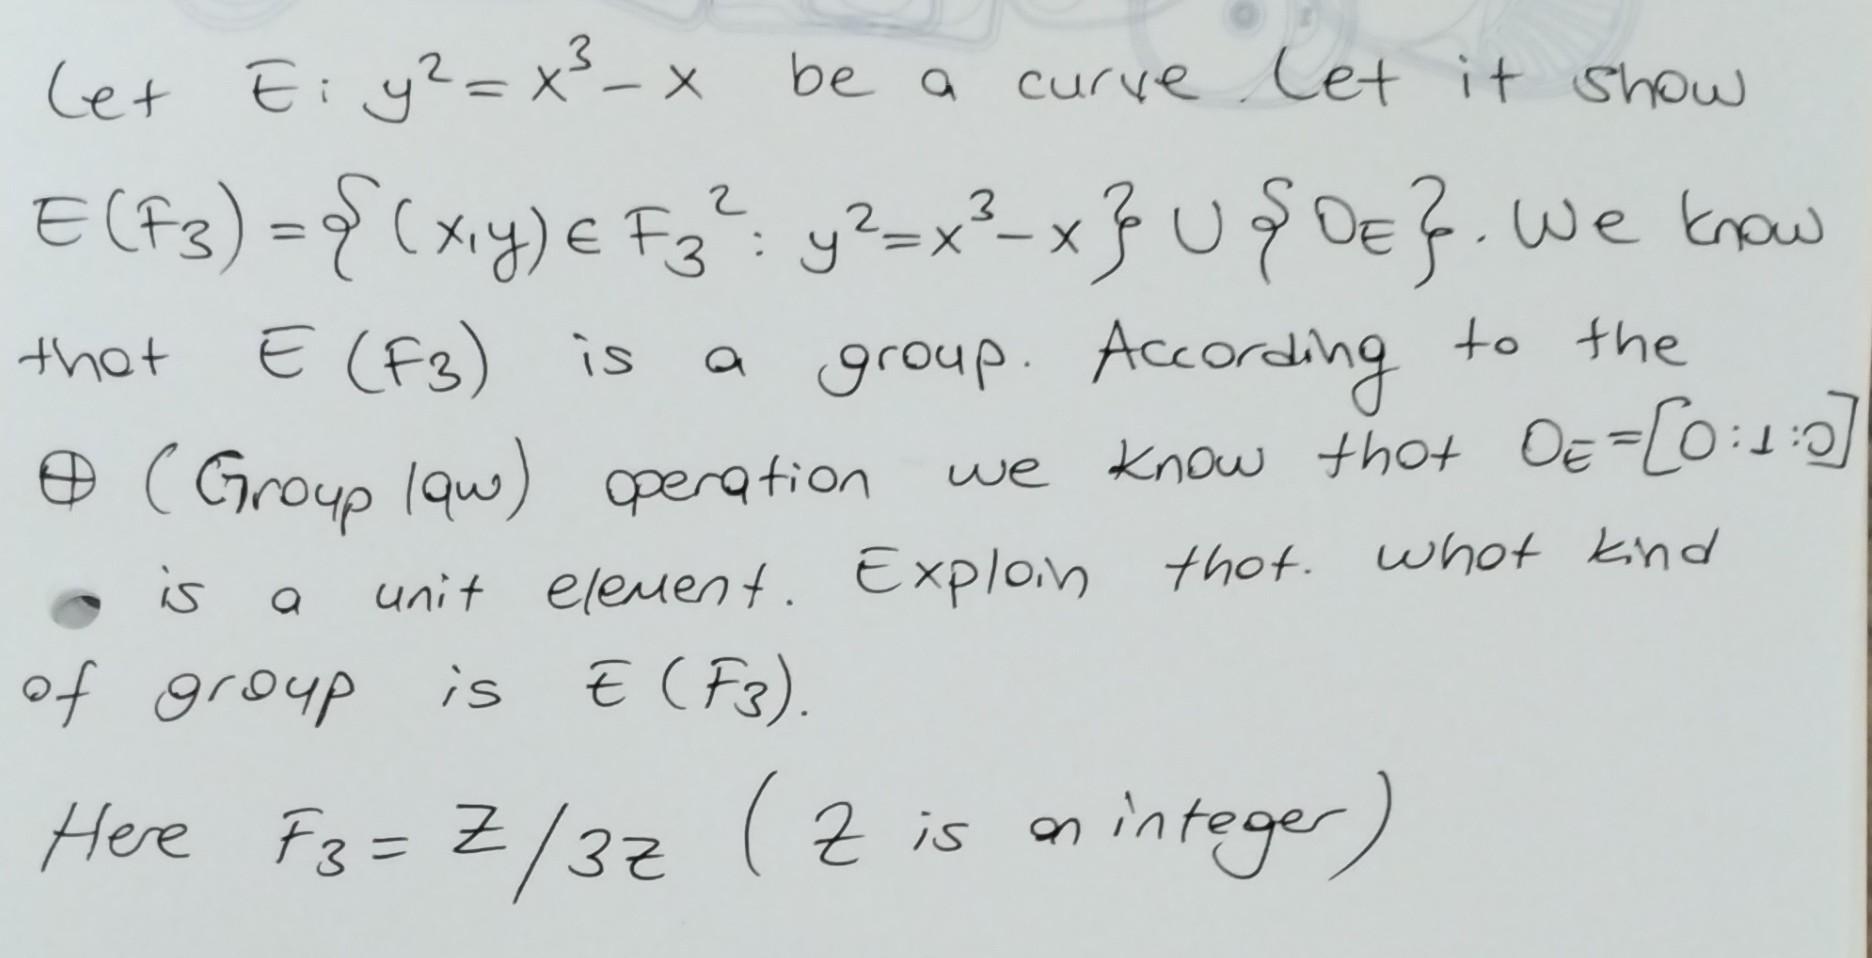 Let E: y² = x³ - x be a curve. Let it show
E(F₃) = {(x,y) ∈ F₃² : y² = x³ - x} ∪ {O_E}. We know
that E (F₃) is a group. According to the
⊕ (Group law) operation we know that O_E = [0:1:0]
is a unit element. Explain that. What kind
of group is E (F₃).
Here F₃ = Z/3Z (Z is an integer)